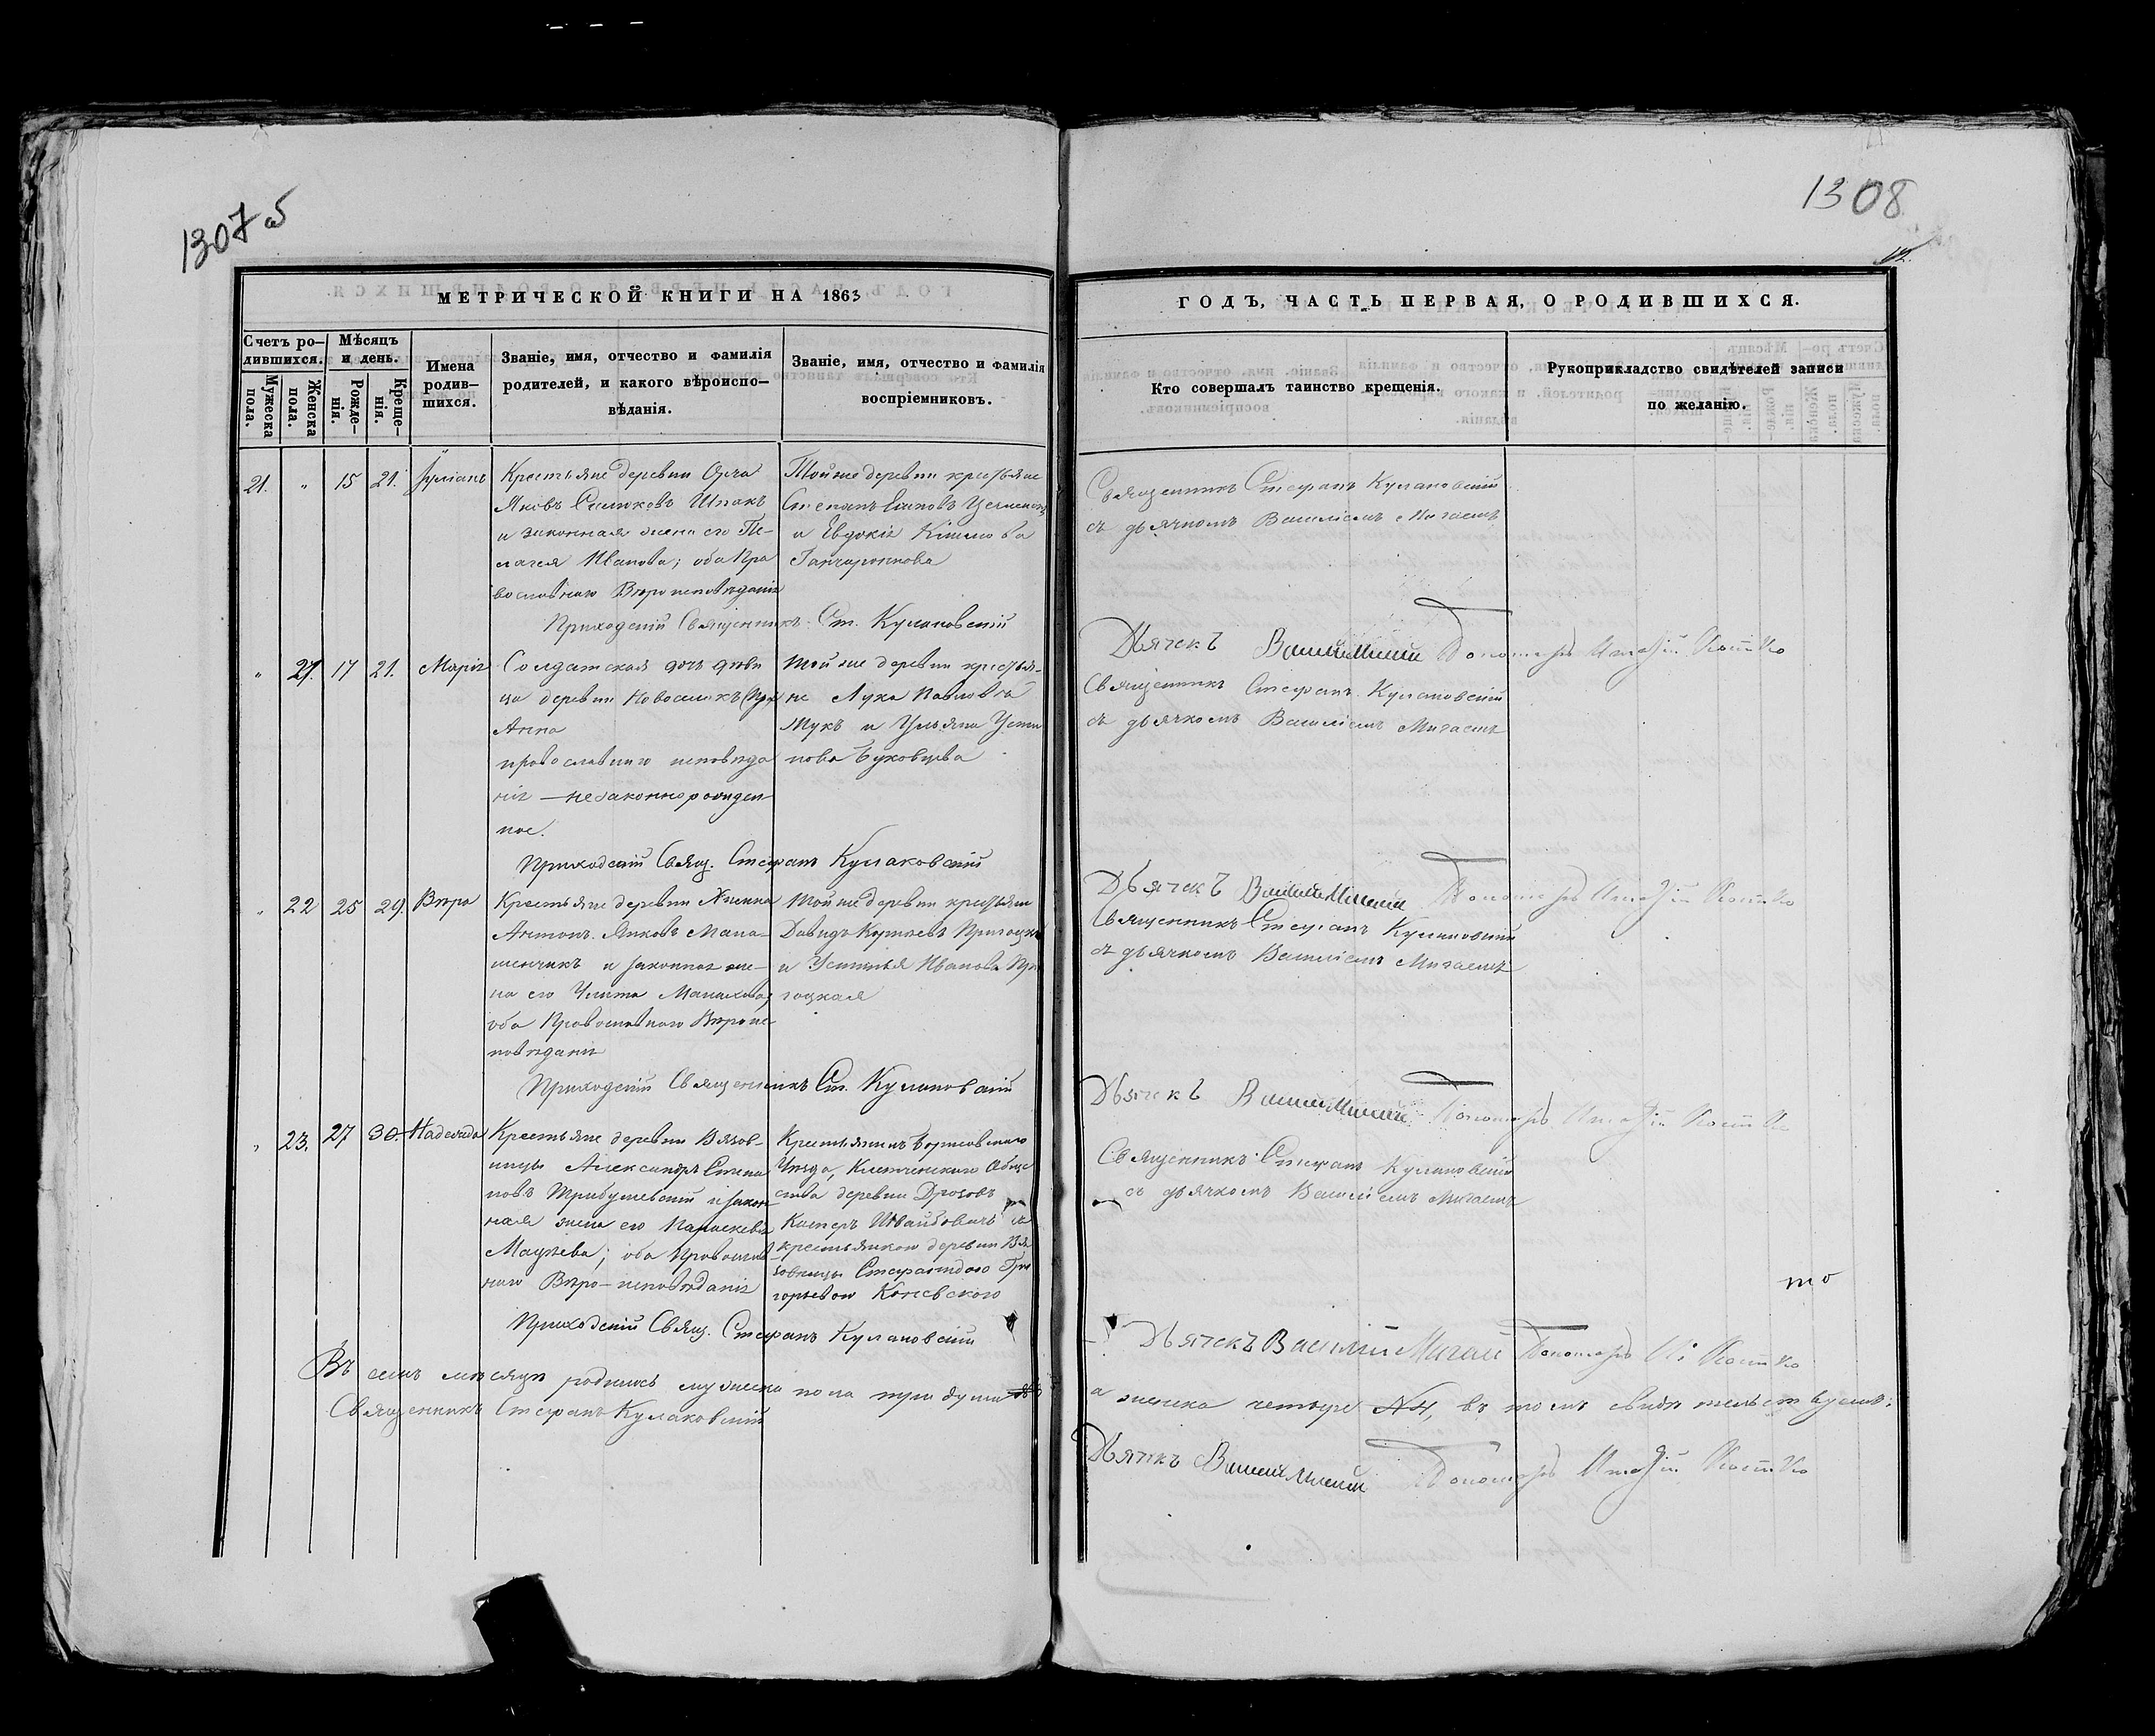 1307 об
1308
12.
МЕТРИЧЕСКОЙ КНИГИ НА 1863
ГОДЪ, ЧАСТЬ ПЕРВАЯ, О РОДИВШИХСЯ.
Счетъ ро-
дившихся.
Мужеска
пола.
Женска
пола.
Мѣсяцъ
и день.
Рожде-
нія.
Креще-
нія.
Имена
родив-
шихся.
Званіе, имя, отчество и фамилія
родителей, и какого вѣроиспо-
вѣданія.
Званіе, имя, отчество и фамилія
воспріемниковъ.
Кто совершалъ таинство крещенія.
Рукоприкладство свидѣтелей записи
по желанію.
21. " 15 21. Іуліанъ
Крестьяне деревни
Яковъ Шпакъ
и законная жена его Пе-
лагея Иванова; оба Пра
вославнаго Вѣроисповѣданія
Тойже деревни крестьяне
Степанъ
и Евдокія
Священникъ Стефанъ Кулаковскій
съ дьячкомъ Василіемъ Мигаемъ
Приходскій Священникъ Ст. Кулаковскій
Дьячекъ Василій Мигай Пономарь Игнатій Костко
" 21. 17 21. Марія
Солдатская дочь дѣви
ца деревни Новоселокъ
Анна
православнаго исповѣда
нія — незаконнорожден-
ное.
Тойже деревни крестья-
не Лука Павловъ
Жукъ и Ульяна Усти
нова Буковцева
Священникъ Стефанъ Кулаковскій
съ дьячкомъ Василіемъ Мигаемъ
Приходскій Свящ. Стефанъ Кулаковскій
Дьячекъ Василій Мигай Пономарь Игнатій Костко
" 22 25 29. Вѣра
Крестьяне деревни
Антонъ Яковъ Мана-
шенчикъ и законная же-
на его
оба Православнаго Вѣроис
повѣданія
Тойже деревни крестьяне
Давидъ
и Устинья Иванова При
гоцкая
Священникъ Стефанъ Кулаковскій
съ дьячкомъ Василіемъ Мигаемъ
Приходскій Священникъ Ст. Кулаковскій
Дьячекъ Василій Мигай Пономарь Игнатій Костко
" 23. 27 30. Надежда
Крестьяне деревни Вязов-
ницы Александръ Степа
новъ Трибушевскій и закон
ная жена его Параскева
Мацѣева; оба Православ
наго Вѣро-исповѣданія
Крестьянинъ Борисовскаго
Уѣзда, Общес
тва деревни
и
крестьянкою деревни Вя
зовницы Стефанидою Гри
горьевою
Священникъ Стефанъ Кулаковскій
съ дьячкомъ Василіемъ Мигаемъ
то
Приходскій Свящ. Стефанъ Кулаковскій
Дьячекъ Василій Мигай Пономарь И. Костко
Въ семъ мѣсяцѣ родилось мужеска пола три души
а женска четыре №4, въ томъ свидѣтельствуемъ:
Священникъ Стефанъ Кулаковскій
Дьячекъ Василій Мигай Пономарь Игнатій Костко